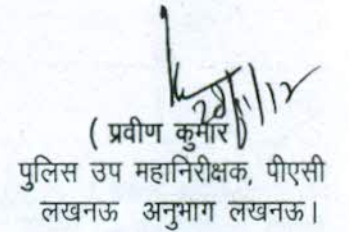 28/11/12
( प्रवीण कुमार )
पुलिस उप महानिरीक्षक, पीएसी
लखनऊ अनुभाग लखनऊ।